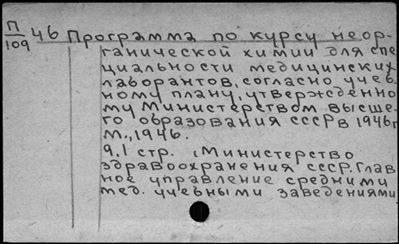 П/109 46 Программа по курсу неор-
ганической химии для спе
циальности медицинских
лаборантов, согласно учеб
ному плану, утвержденно
му Министерством высше-
го образования СССР в 1946 г.
М., 1946.
9,1 стр. (Министерство
здравоохранения СССР. Глав
ное управление средними
мед. учебными заведениями